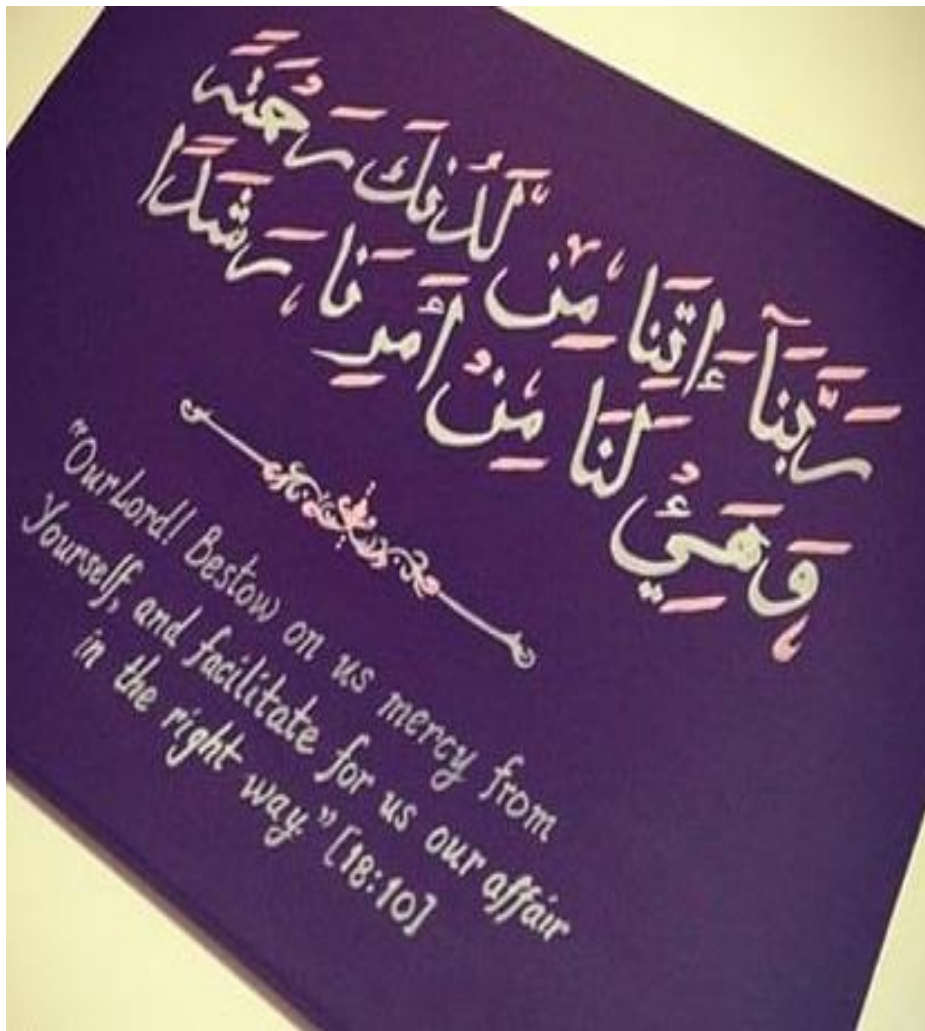 رَبَّنَآ ءَاتِنَا مِن لَّدُنكَ رَحْمَةً
وَهَيِّئْ لَنَا مِنْ أَمْرِنَا رَشَدًا
"Our Lord! Bestow on us mercy from
Yourself, and facilitate for us our affair
in the right way." [18:10]